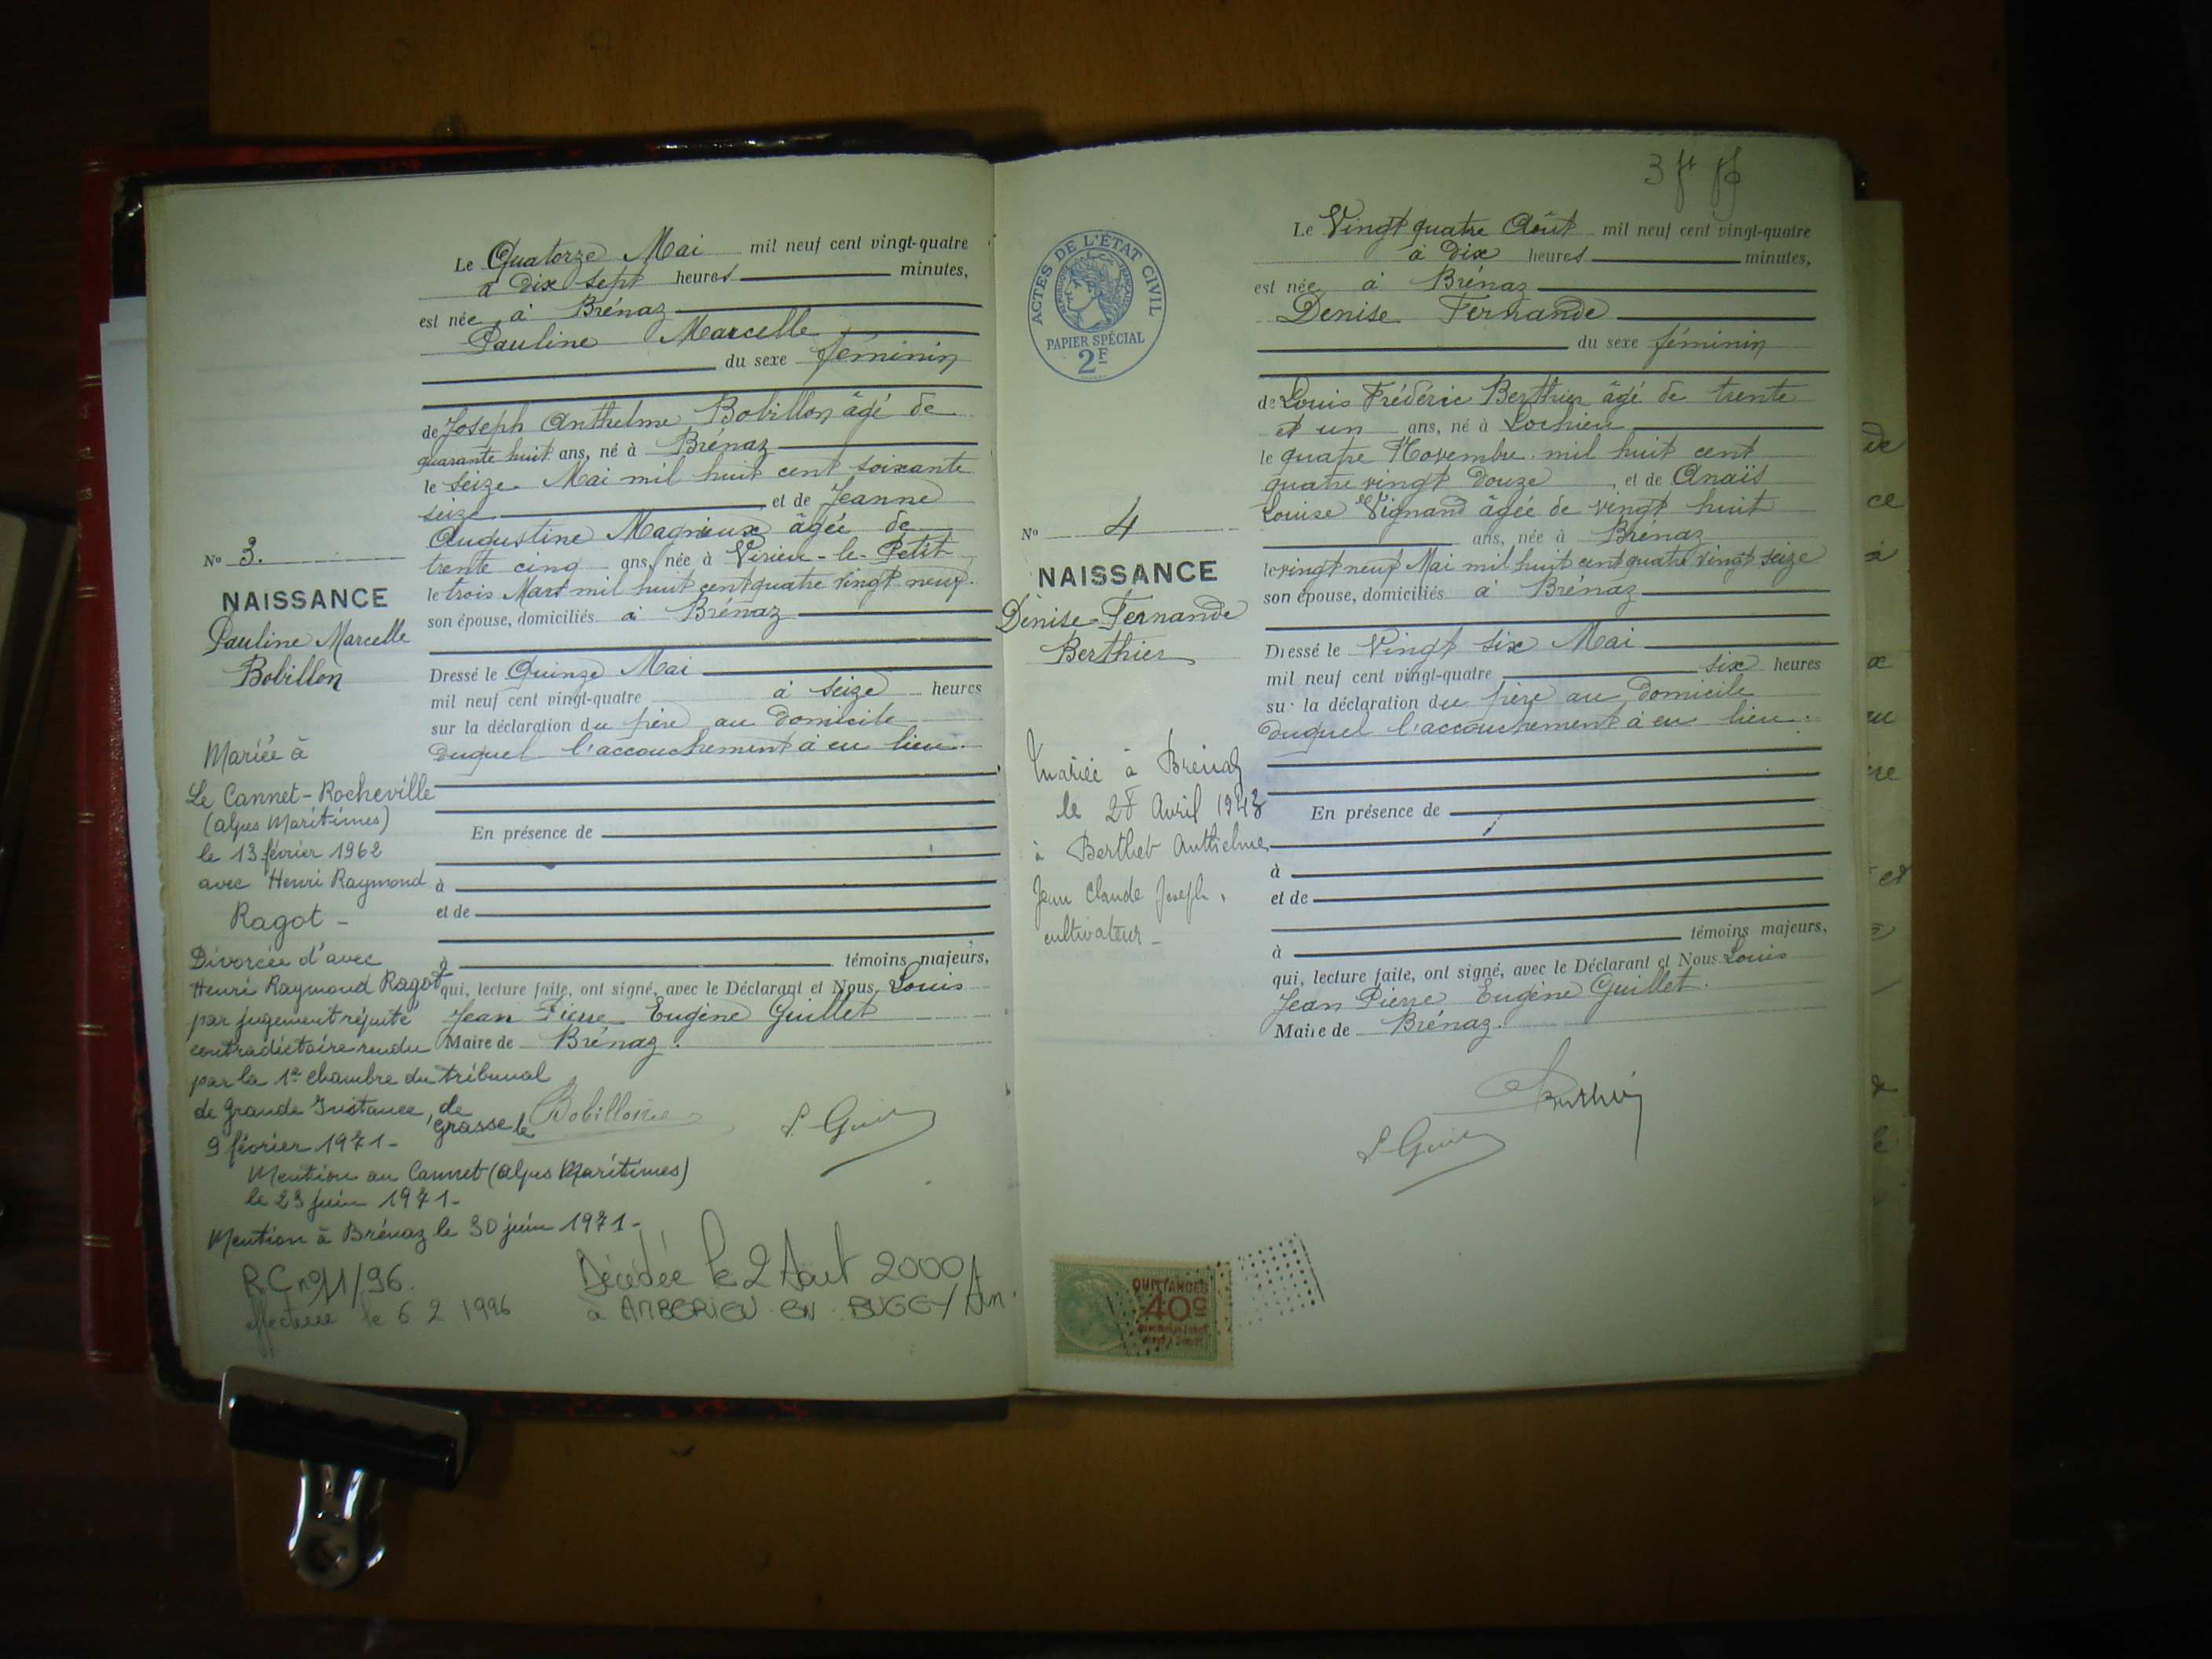 Le Quatorze Mai mil neuf cent vingt-quatre
à dix sept heures minutes,
est née à Brénaz
Pauline Marcelle
du sexe féminin
de Joseph Anthelme Bobillon âgé de
quarante huit ans, né à Brénaz
le seize Mai mil huit cent soixante
seize et de Jeanne
Augustine Magnieux âgée de
trente cinq ans, née à Virieu-le-Petit
le trois Mars mil huit cent quatre vingt neuf.
son épouse, domiciliés à Brénaz
Dressé le Quinze Mai
mil neuf cent vingt-quatre à seize heures
sur la déclaration du père au domicile
duquel l'accouchement à eu lieu.
En présence de
à
et de
à témoins majeurs,
qui, lecture faite, ont signé, avec le Déclarant et Nous Louis
Jean Pierre Eugène Guillet
Maire de Brénaz.
Bobillon
L. Guillet
No 3.
NAISSANCE
Pauline Marcelle
Bobillon
Mariée à
Le Cannet-Rocheville
(Alpes Maritimes)
le 13 février 1962
avec Henri Raymond
Ragot -
Divorcée d'avec
Henri Raymond Ragot
par jugement réputé
contradictoire rendu
par la 1e chambre du tribunal
de Grande Instance, de
Grasse le
9 février 1971-
Mention au Cannet (Alpes Maritimes)
le 23 juin 1971-
Mention à Brénaz le 30 juin 1971-
RC n° 11/96.
effectuée le 6 2 1996
Décédée le 2 Aout 2000
à AMBERIEU EN BUGEY Ain.
3
ACTES DE L'ÉTAT CIVIL
RÉPUBLIQUE FRANÇAISE
PAPIER SPÉCIAL
2F
Le Vingt quatre Août mil neuf cent vingt-quatre
à Dix heures minutes,
est née à Brénaz
Denise Fernande
du sexe féminin
de Louis Frédéric Berthier âgé de trente
et un ans, né à Lochieu
le quatre Novembre mil huit cent
quatre vingt douze, et de Anaïs
Louise Vignand âgée de vingt huit
ans, née à Brénaz
le vingt neuf Mai mil huit cent quatre vingt seize
son épouse, domiciliés à Brénaz
Dressé le Vingt six Mai
mil neuf cent vingt-quatre six heures
sur la déclaration du père au domicile
duquel l'accouchement à eu lieu.
En présence de
à
et de
à témoins majeurs,
qui, lecture faite, ont signé, avec le Déclarant et Nous Louis
Jean Pierre Eugène Guillet.
Maire de Brénaz.
Berthier
L. Guillet
No 4
NAISSANCE
Denise Fernande
Berthier
Mariée à Brénaz
le Avril 1943
à Berthet Anthelme
Jean Claude Joseph,
cultivateur-
QUITTANCES
40c